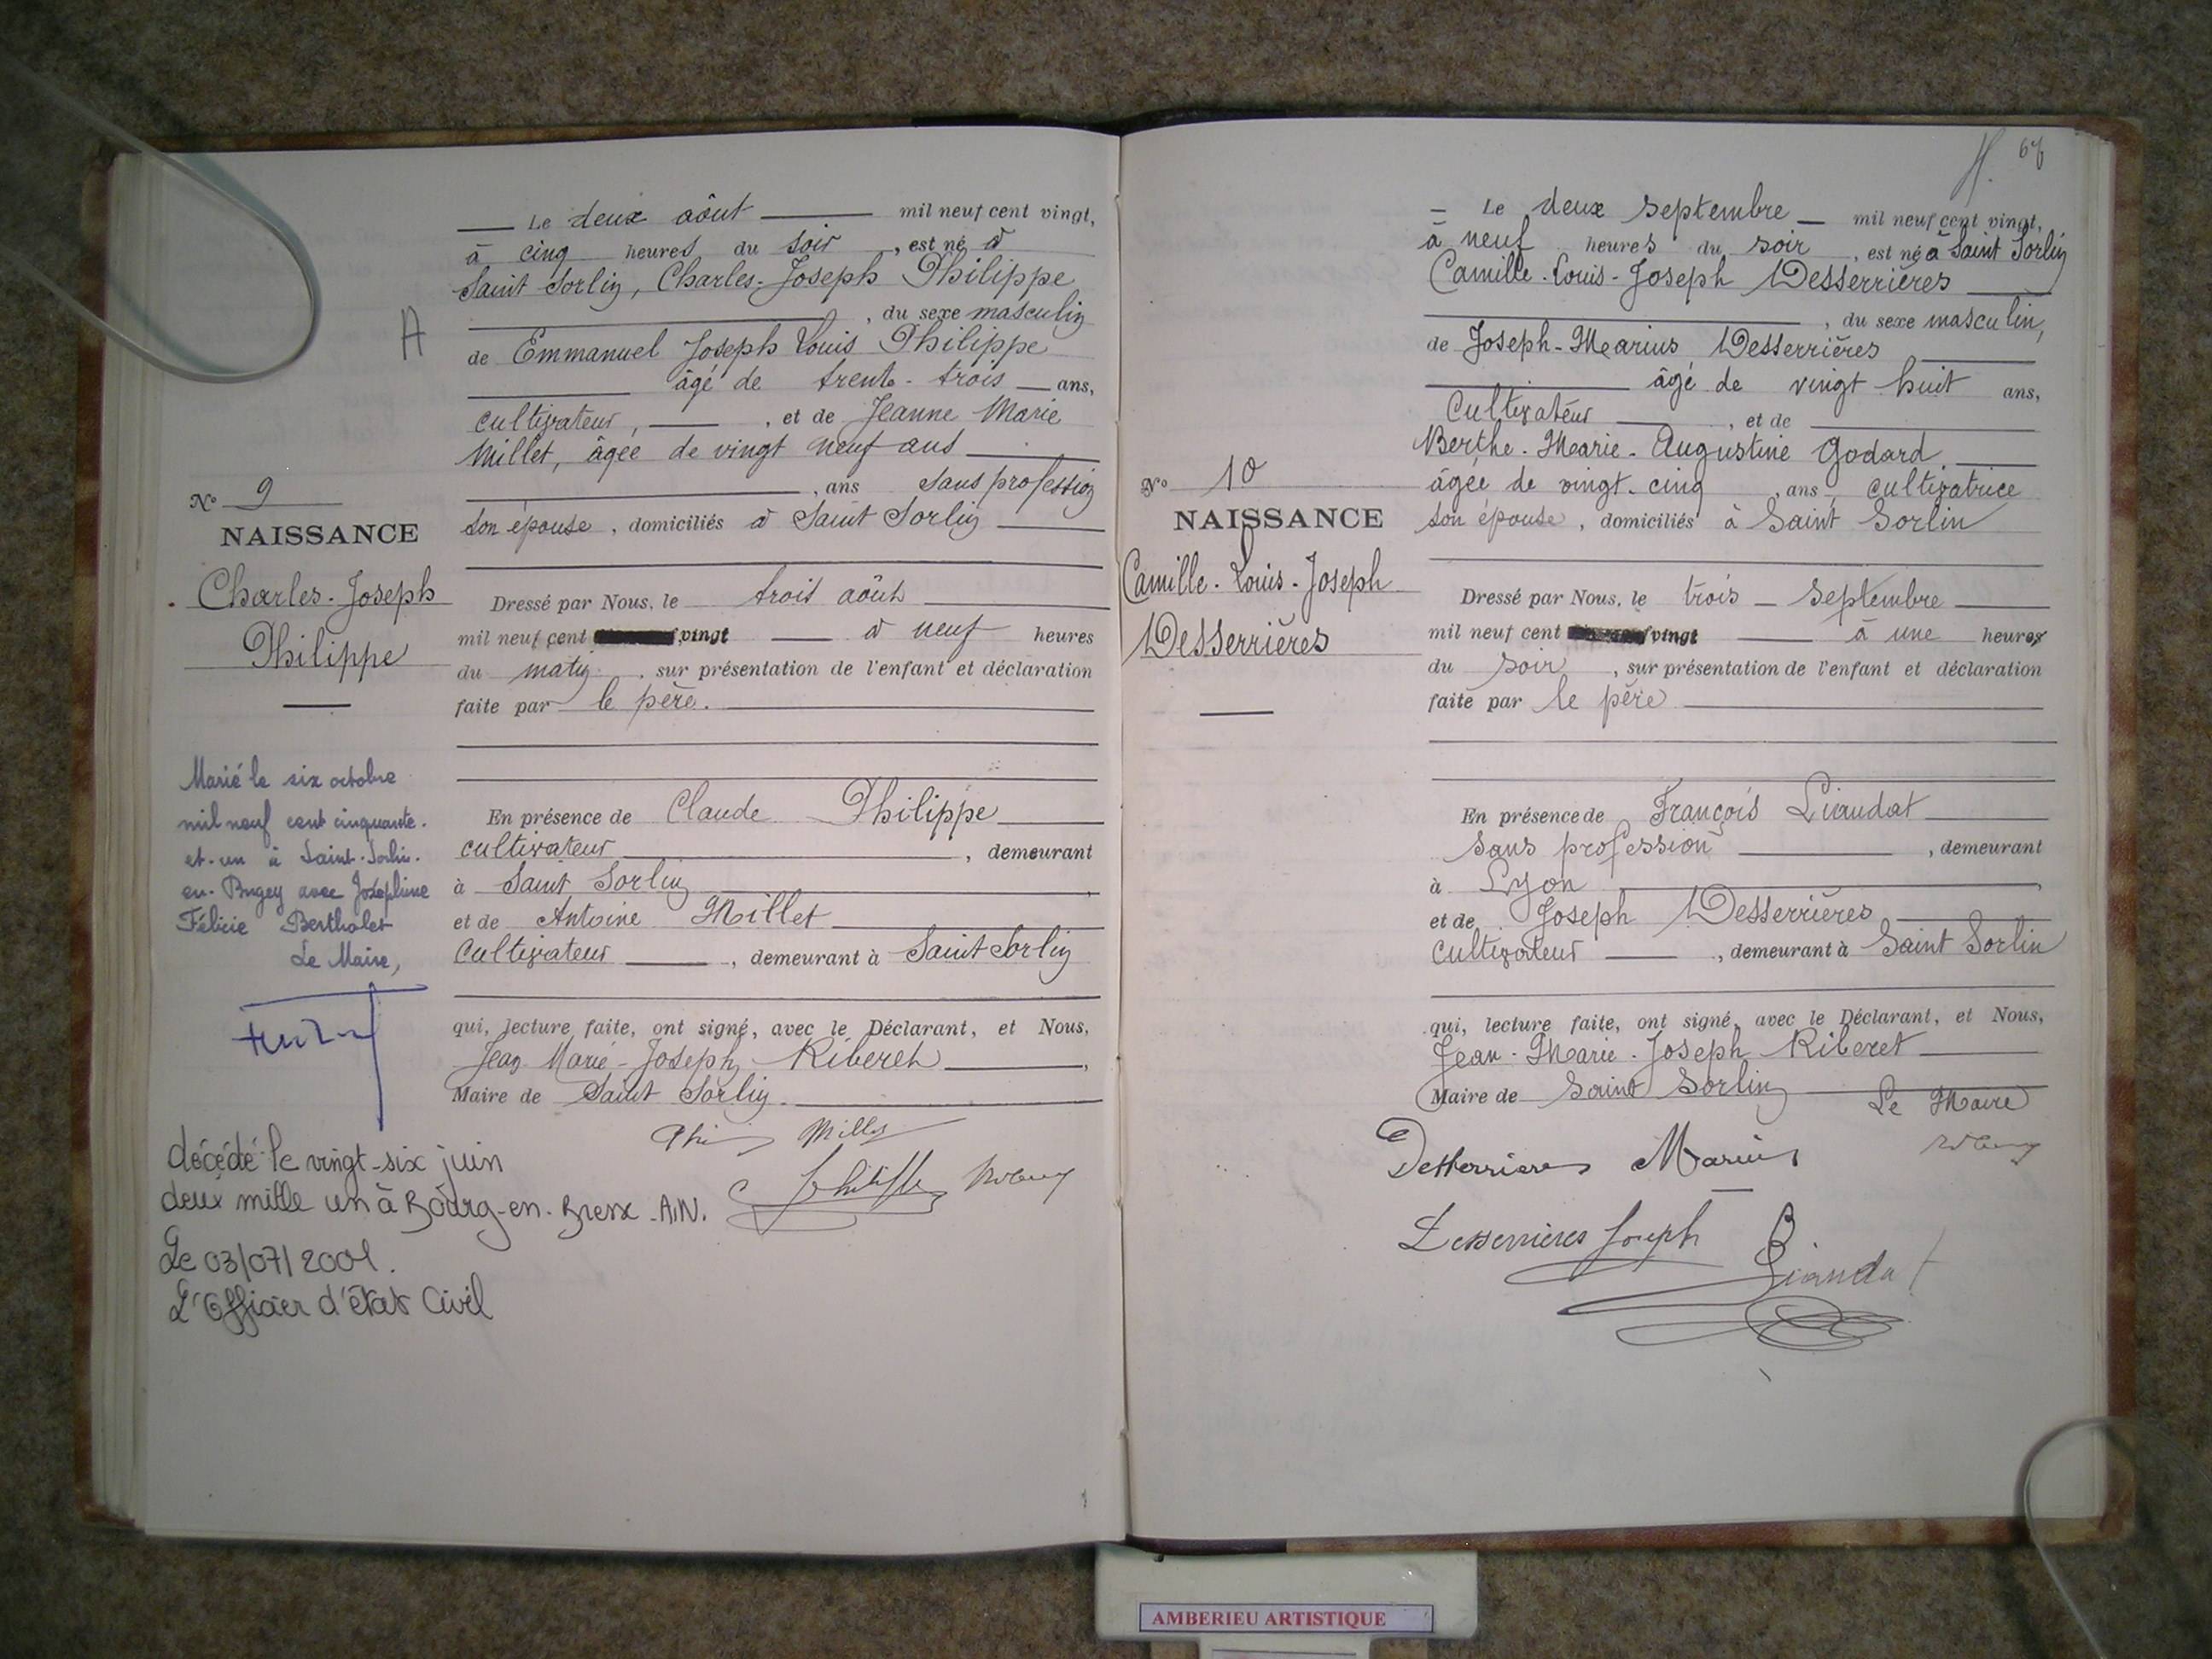 Le deux aôut mil neuf cent vingt,
à cinq heures du soir, est né à
Saint Sorlin, Charles-Joseph Philippe
, du sexe masculin
A
de Emmanuel Joseph Louis Philippe
âgé de trente-trois ans,
cultivateur, , et de Jeanne Marie
Millet, âgée de vingt neuf ans
, ans sans profession
son épouse, domiciliés à Saint Sorlin
N° 9
NAISSANCE
Charles-Joseph
Philippe
Dressé par Nous, le trois aôut
mil neuf cent vingt à neuf heures
du matin, sur présentation de l'enfant et déclaration
faite par le père.
En présence de Claude Philippe
cultivateur, demeurant
à Saint Sorlin
et de Antoine Millet
Cultivateur, demeurant à Saint Sorlin
qui, lecture faite, ont signé, avec le Déclarant, et Nous,
Jean Marie-Joseph Riberet,
Maire de Saint Sorlin.
Marié le six octobre
mil neuf cent cinquante-
et-un à Saint-Sorlin-
en-Bugey avec Joséphine
Félicie Bertholet
Le Maire,
décédé le vingt-six juin
deux mille un à Bourg-en-Bresse-AIN.
Le 03/07/2001.
L'Officier d'état Civil
67
Le deux septembre mil neuf cent vingt,
à neuf heures du soir, est né à Saint Sorlin
Camille-Louis-Joseph Desserrières
, du sexe masculin,
de Joseph-Marius Desserrières
âgé de vingt huit ans,
Cultivateur, et de
Berthe-Marie-Augustine Godard
âgée de vingt-cinq, ans, cultivatrice
son épouse, domiciliés à Saint Sorlin
N° 10
NAISSANCE
Camille-Louis-Joseph
Desserrières
Dressé par Nous, le trois septembre
mil neuf cent vingt à une heures
du soir, sur présentation de l'enfant et déclaration
faite par le père
En présence de François Liaudat
sans profession, demeurant
à Lyon
et de Joseph Desserrières
Cultivateur, demeurant à Saint Sorlin
qui, lecture faite, ont signé, avec le Déclarant, et Nous,
Jean-Marie-Joseph Riberet
Maire de Saint Sorlin
Le Maire
Desserrières Marius
Desserrières Joseph
Liaudat
AMBERIEU ARTISTIQUE